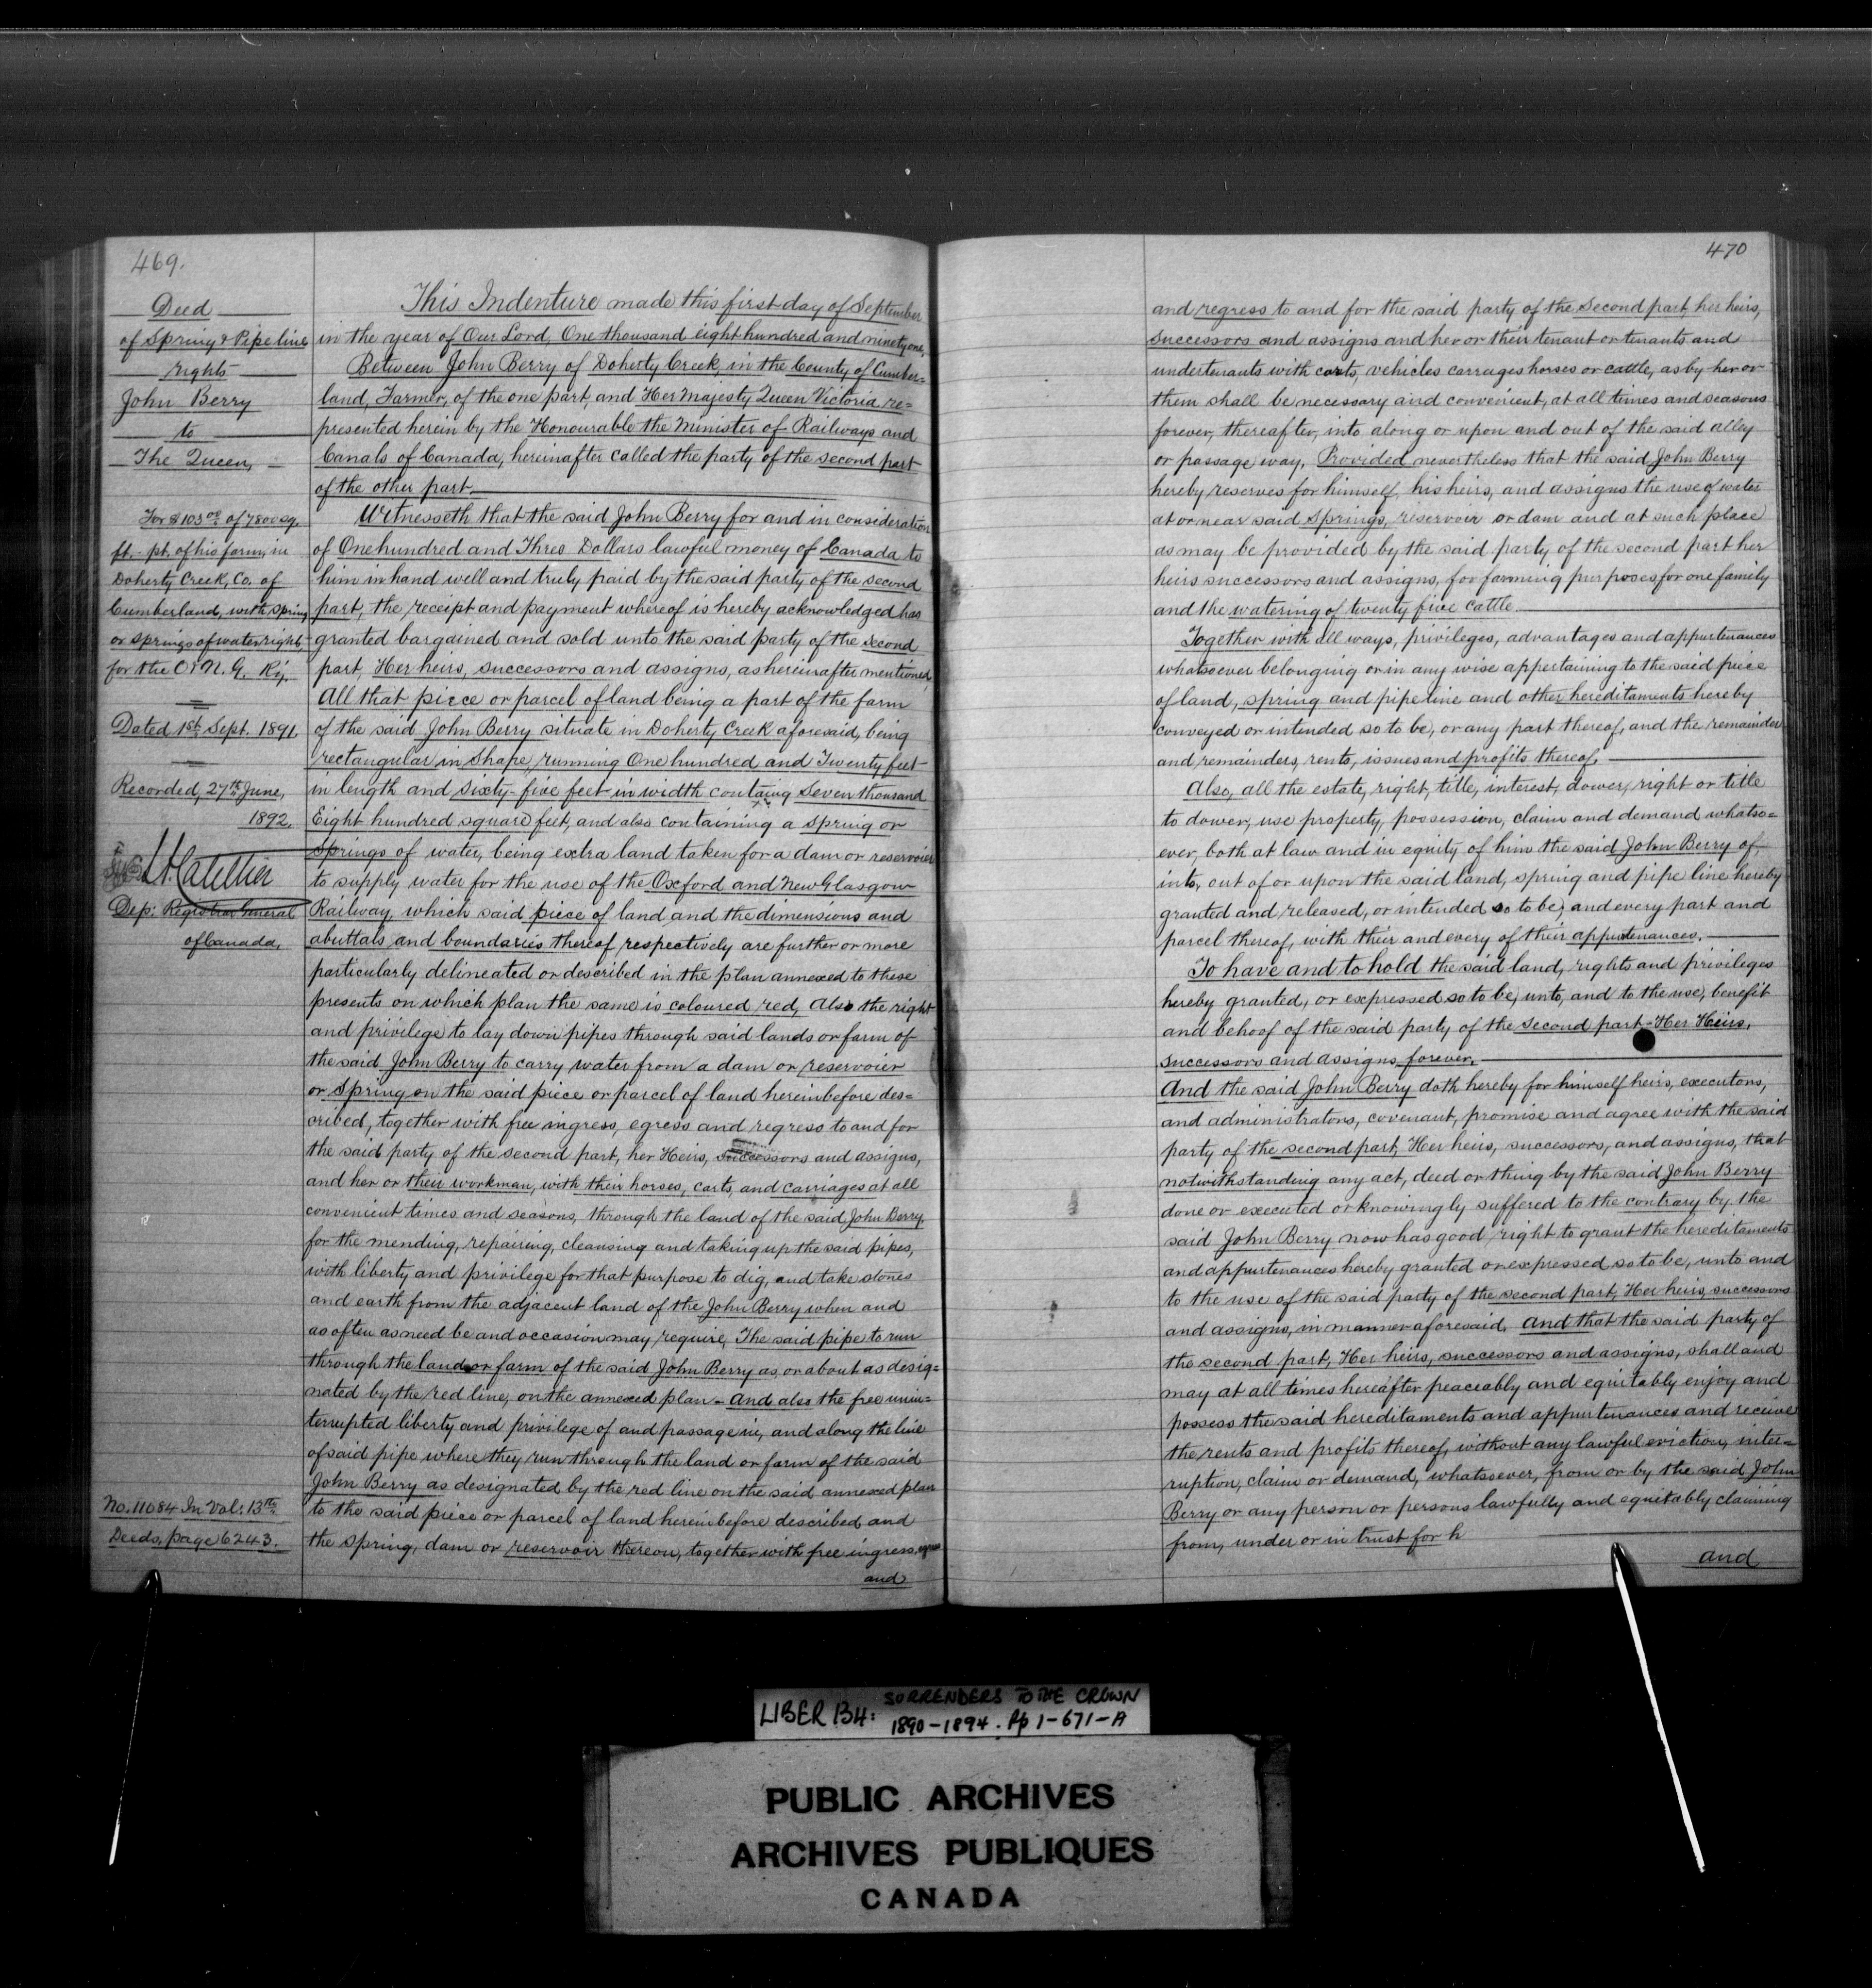 469.
Deed
of Spring & Pipe line
rights
John Berry
to
The Queen,
For $103.00 of 7800 sq.
ft. - pt. of his farm, in
Doherty Creek, Co. of
Cumberland, with spring
or springs of water, right
for the O & N. G. Ry.
Dated 1st Sept. 1891.
Recorded, 27th June,
1892.
Dep: Registrar General
of Canada,
No. 11084 In Vol: 13th
Deeds, page 6243.
This Indenture made this first day of September
in the year of Our Lord, One thousand eight hundred and ninety one,
Between John Berry of Doherty Creek, in the County of Cumber=
land, Farmer, of the one part, and Her Majesty Queen Victoria re=
presented herein by the Honourable the Minister of Railways and
Canals of Canada, hereinafter called the party of the second part
of the other part
Witnesseth that the said John Berry for and in consideration
of One hundred and Three Dollars lawful money of Canada to
him in hand well and truly paid by the said party of the second
part, the receipt and payment whereof is hereby acknowledged has
granted bargained and sold unto the said party of the second
part, Her heirs, successors and assigns, as hereinafter mentioned,
All that piece or parcel of land being a part of the farm
of the said John Berry situate in Doherty Creek aforesaid, being
rectangular in shape, running One hundred and Twenty feet
in length and sixty-five feet in width containg Seven thousand
Eight hundred square feet, and also containing a spring or
springs of water, being extra land taken for a dam or reservoier
to supply water for the use of the Oxford and New Glasgow
Railway, which said piece of land and the dimensions and
abuttals and boundaries thereof respectively are further or more
particularly delineated or described in the plan annexed to these
presents on which plan the same is coloured red, Also the right
and privilege to lay down pipes through said lands or farm of
the said John Berry to carry water from a dam or reservoier
or spring on the said piece or parcel of land hereinbefore des=
cribed, together with free ingress, egress and regress to and for
the said party of the second part, her Heirs, successors and assigns,
and her or their workman, with their horses, carts, and carriages at all
convenient times and seasons, through the land of the said John Berry,
for the mending, repairing, cleansing and taking up the said pipes,
with liberty and privilege for that purpose to dig, and take stones
and earth from the adjacent land of the John Berry when and
as often as need be and occasion may require, The said pipe to run
through the land or farm of the said John Berry as, or about as desig=
nated by the red line, on the annexed plan - and also the free unin=
terrupted liberty and privilege of and passage in, and along the line
of said pipe where they run through the land or farm of the said
John Berry as designated by the red line on the said annexed plan
to the said piece or parcel of land hereinbefore described and
the spring, dam or reservoir thereon, together with free ingress, egress
and
470
and regress to and for the said party of the Second part, her heirs,
successors and assigns and her or their tenant or tenants and
undertenants with carts, vehicles carrages horses or cattle, as by her or
them shall be necessary and convenient, at all times and seasons
forever, thereafter, into along or upon and out of the said alley
or passage way, Provided nevertheless that the said John Berry
hereby reserves for himself, his heirs, and assigns the use of water
at or near said springs, reservoir or dam and at such place
as may be provided by the said party of the second part her
heirs successors and assigns, for farming purposes for one family
and the watering of twenty five cattle.
Together with all ways, privileges, advantages and appurtenances
whatsoever belonging or in any wise appertaining to the said piece
of land, spring and pipe line and other hereditaments hereby
conveyed or intended so to be, or any part thereof, and the remainder
and remainders, rents, issues and profits thereof,
Also, all the estate, right, title, interest, dower, right or title
to dower, use property, possession, claim and demand whatso=
ever, both at law and in equity of him the said John Berry of,
into, out of or upon the said land, spring and pipe line hereby
granted and released, or intended so to be, and every part and
parcel thereof, with their and every of their appurtenances.
To have and to hold the said land, rights and privileges
hereby granted, or expressed so to be, unto, and to the use, benefit
and behoof of the said party of the second part - Her Heirs,
successors and assigns forever.
And the said John Berry doth hereby for himself heirs, executors,
and administrators, covenant, promise and agree with the said
party of the second part, Her heirs, successors, and assigns, that
notwithstanding any act, deed or thing by the said John Berry
done or executed or knowingly suffered to the contrary by the
said John Berry now has good right to grant the hereditaments
and appurtenances hereby granted or expressed so to be, unto and
to the use of the said party of the second part, Her heirs, successors
and assigns, in manner aforesaid. And that the said party of
the second part, Her heirs, successors and assigns, shall and
may at all times hereafter peaceably and equitably enjoy and
possess the said hereditaments and appurtenances and receive
the rents and profits thereof, without any lawful eviction, inter=
ruption, claim or demand, whatsoever, from or by the said John
Berry or any person or persons lawfully and equitably claiming
from, under or in trust for h
and
LIBER 134: SURRENDERS TO THE CROWN
1890-1894. Pp 1-671-A
PUBLIC ARCHIVES
ARCHIVES PUBLIQUES
CANADA